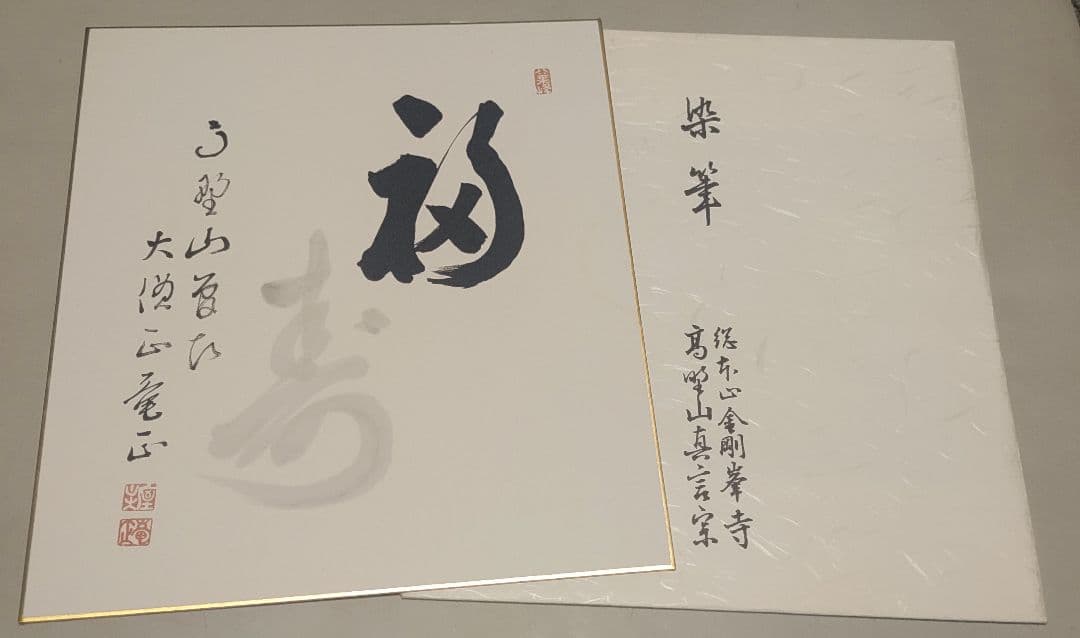 福
寿
高野山管長
大僧正竜正
染筆
総本山金剛峯寺
高野山真言宗